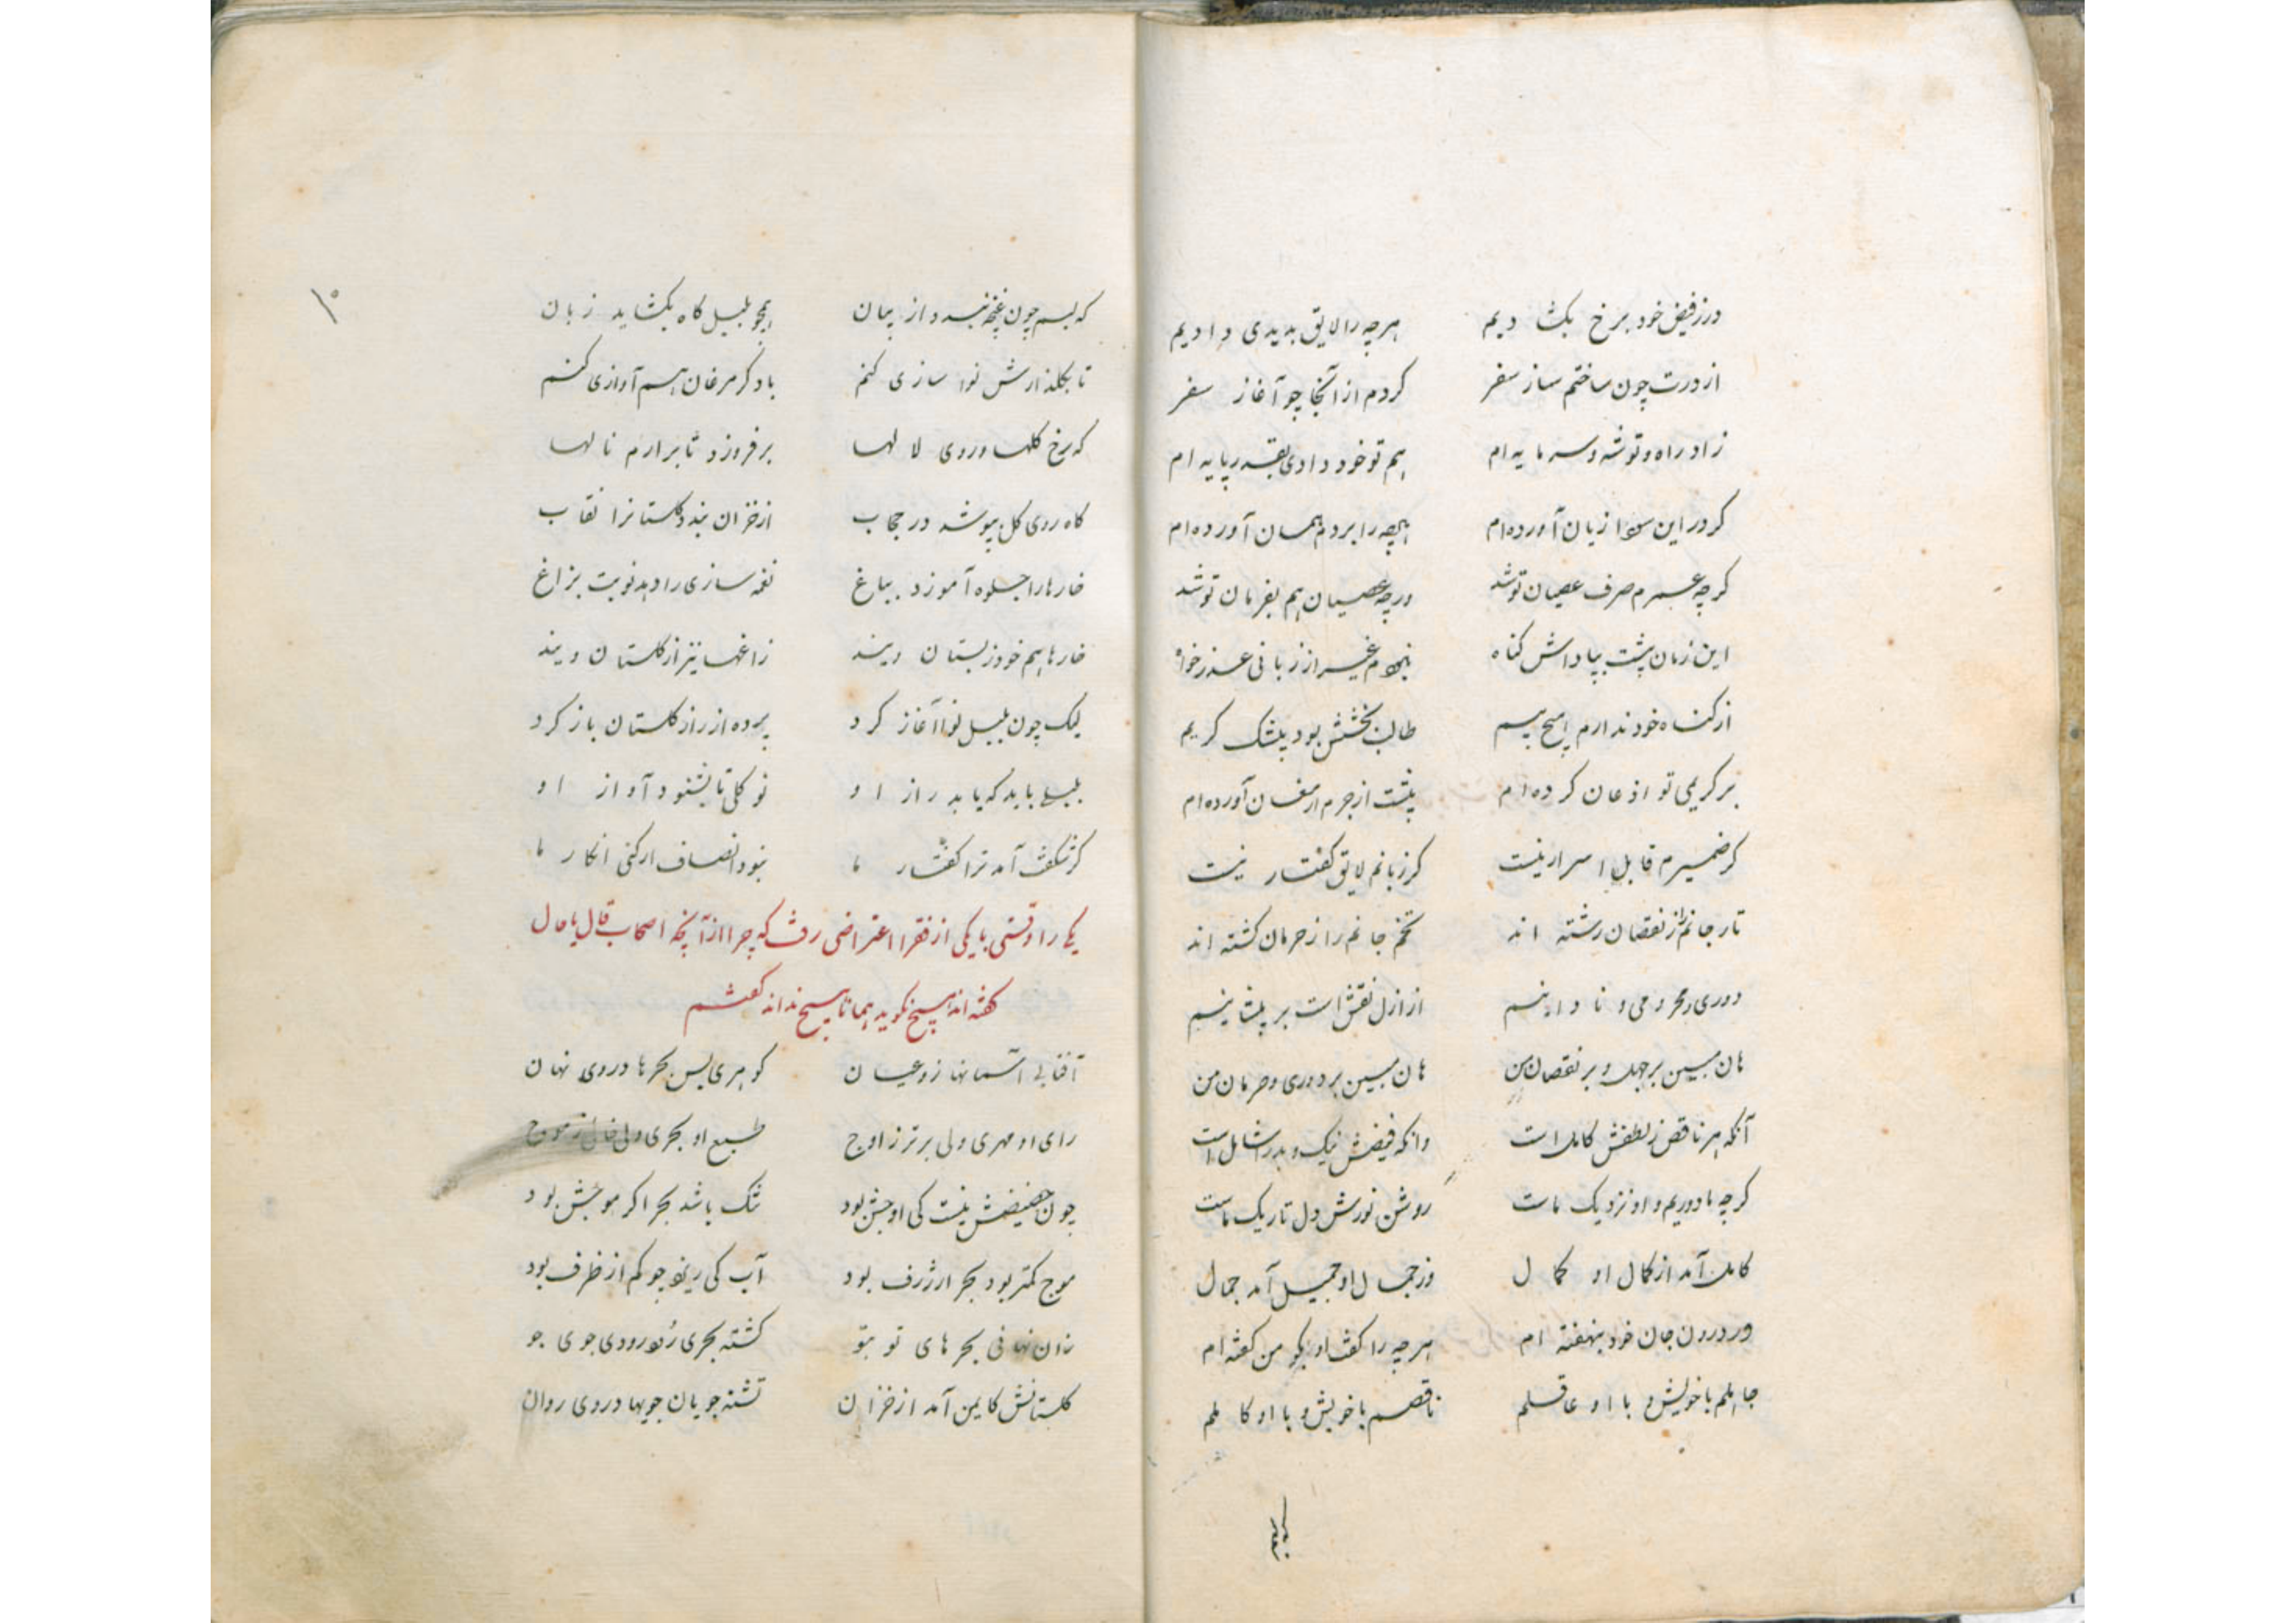 درز فیض خود برخ بکشادیم هر چه را لایق بدیدی دادیم
از درت چون ساختم ساز سفر کردم از آنجا چو آغاز سفر
زاد راه و توشه و سرمایه ام هم تو خود دادی بقدر پایه ام
کر در این سودا زیان آورده‌ام هرچه را بردم همان آورده‌ام
کر چه عمرم صرف عصیان تو شد ورچه عصیان هم بفرمان تو شد
این زمان پشت بپاداش کناه نبودم غیر از زبانی عذرخواه
از کناه خود ندارم هیچ بیم طالب بخشش بود بیشک کریم
بر کریمی تو اذعان کرده ام پیشت از جرم ارمغان آورده‌ام
کر ضمیرم قابل اسرار نیست کر زبانم لایق کفتار نیست
تار جانم را ز نقصان رشته اند تخم جانم را ز حرمان کشته اند
دوری و محرومی و نادانیم از ازل نقش است بر پیشانیم
هان مبین بر جهل و بر نقصان من هان مبین بر دوری و حرمان من
آنکه هر ناقص ز لطفش کامل است وانکه فیضش نیک و بد را شامل است
کر چه ما دوریم و او نزدیک ماست روشن از نورش دل تاریک ماست
کامل آمد از کمال او کمال وز جمال او جمیل آمد جمال
ور درون جان خود بنهفته ام هر چه را کفت او بکو من کفته ام
جاهلم با خویش و با او عاقلم ناقصم با خویش و با او کاملم
۱۰
که لبم چون غنچه بندد از بیان همچو بلبل کاه بکشاید زبان
تا بکلذارش نوا سازی کنم با دکر مرغان هم آوازی کنم
که رخ کلها و روی لالها برفروزد تا برارم نالها
کاه روی کل بپوشد در حجاب از خزان بندد کلستانرا نقاب
خارها را جلوه آموزد بباغ نغمه سازی را دهد نوبت بزاغ
خارها هم خود ز بستان ویند زاغها نیز از کلستان ویند
لیک چون بلبل نوا آغاز کرد پرده از راز کلستان باز کرد
بلبلی باید که یابد راز او نو کلی تا بشنود آواز او
کر شکفت آمد ترا کفتار ما نبود انصاف ار کنی انکار ما
یکی را وقتی با یکی از فقرا اعتراضی رفت که چرا از آنچه اصحاب قال یا حال
کفته اند هیچ نکوید همانا هیچ نداند کفتم
آفتابی آسمانها زو عیان کوهری پس بحرها در وی نهان
رای او مهری ولی برتر ز اوج طبع او بحری ولی خالی ز موج
چون حضیضش نیست کی اوجش بود تنک باشد بحر اکر موجش بود
موج کمتر بود بحر ار ژرف بود آب کی ریزد چو کم از ظرف بود
زان نهانی بحر های تو بتو کشته بحری رود رودی جوی جو
کلستانش کایمن آمد از خزان تشنه جویان جویها در وی روان